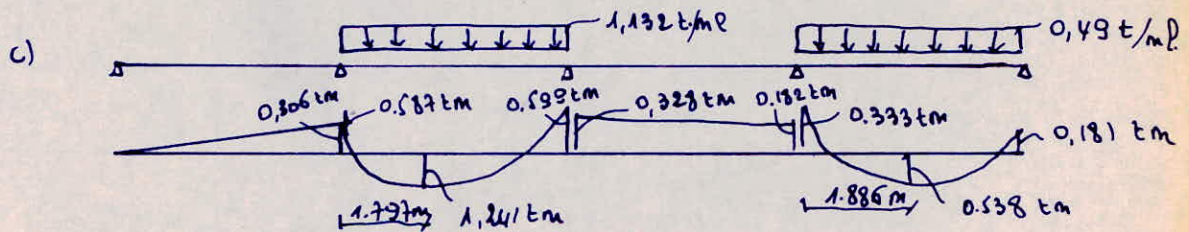 c)
1,132 t/ml
0,49 t/ml.
0,306 tm
0.587 tm
0.599 tm
0,328 tm
0.182 tm
0.333 tm
0,181 tm
1.797m
1,241 tm
1.886 m
0.538 tm